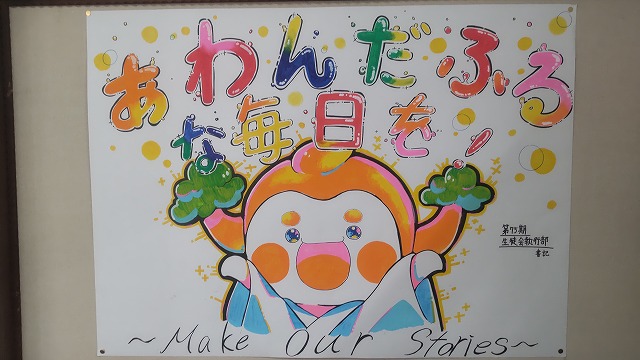 あわんだふる
な毎日を!
第73期
生徒会執行部
書記
~Make Our Stories~